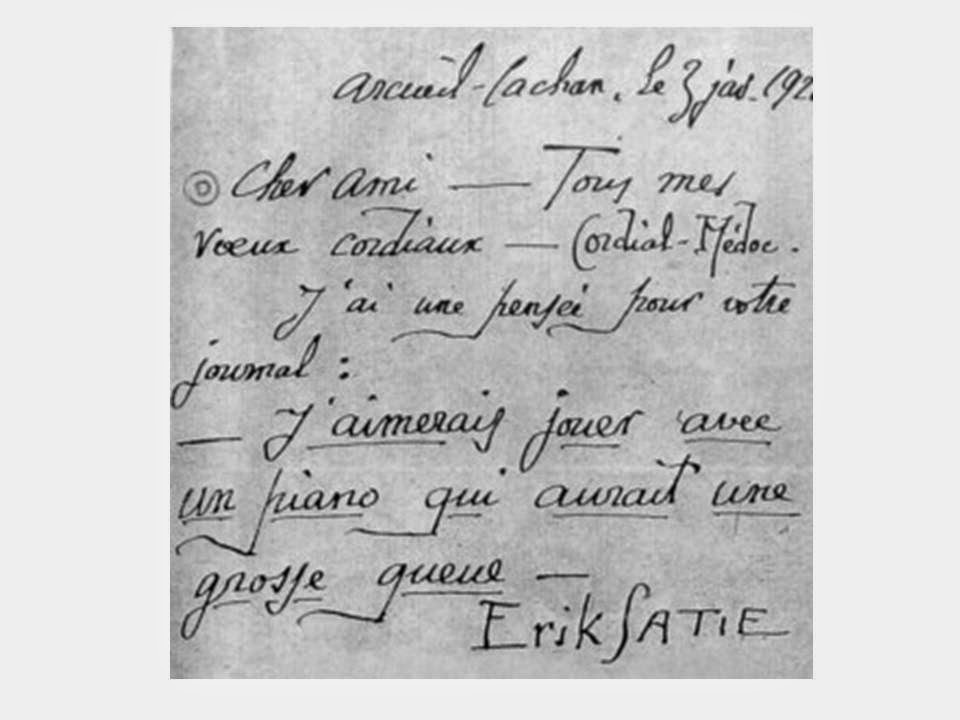 Arcueil-Cachan, le 3 jas. 192
Cher Ami — Tous mes
vœux cordiaux — Cordial-Médoc.
J'ai une pensée pour votre
journal :
— J'aimerais jouer avec
un piano qui aurait une
grosse queue —
Erik SATIE